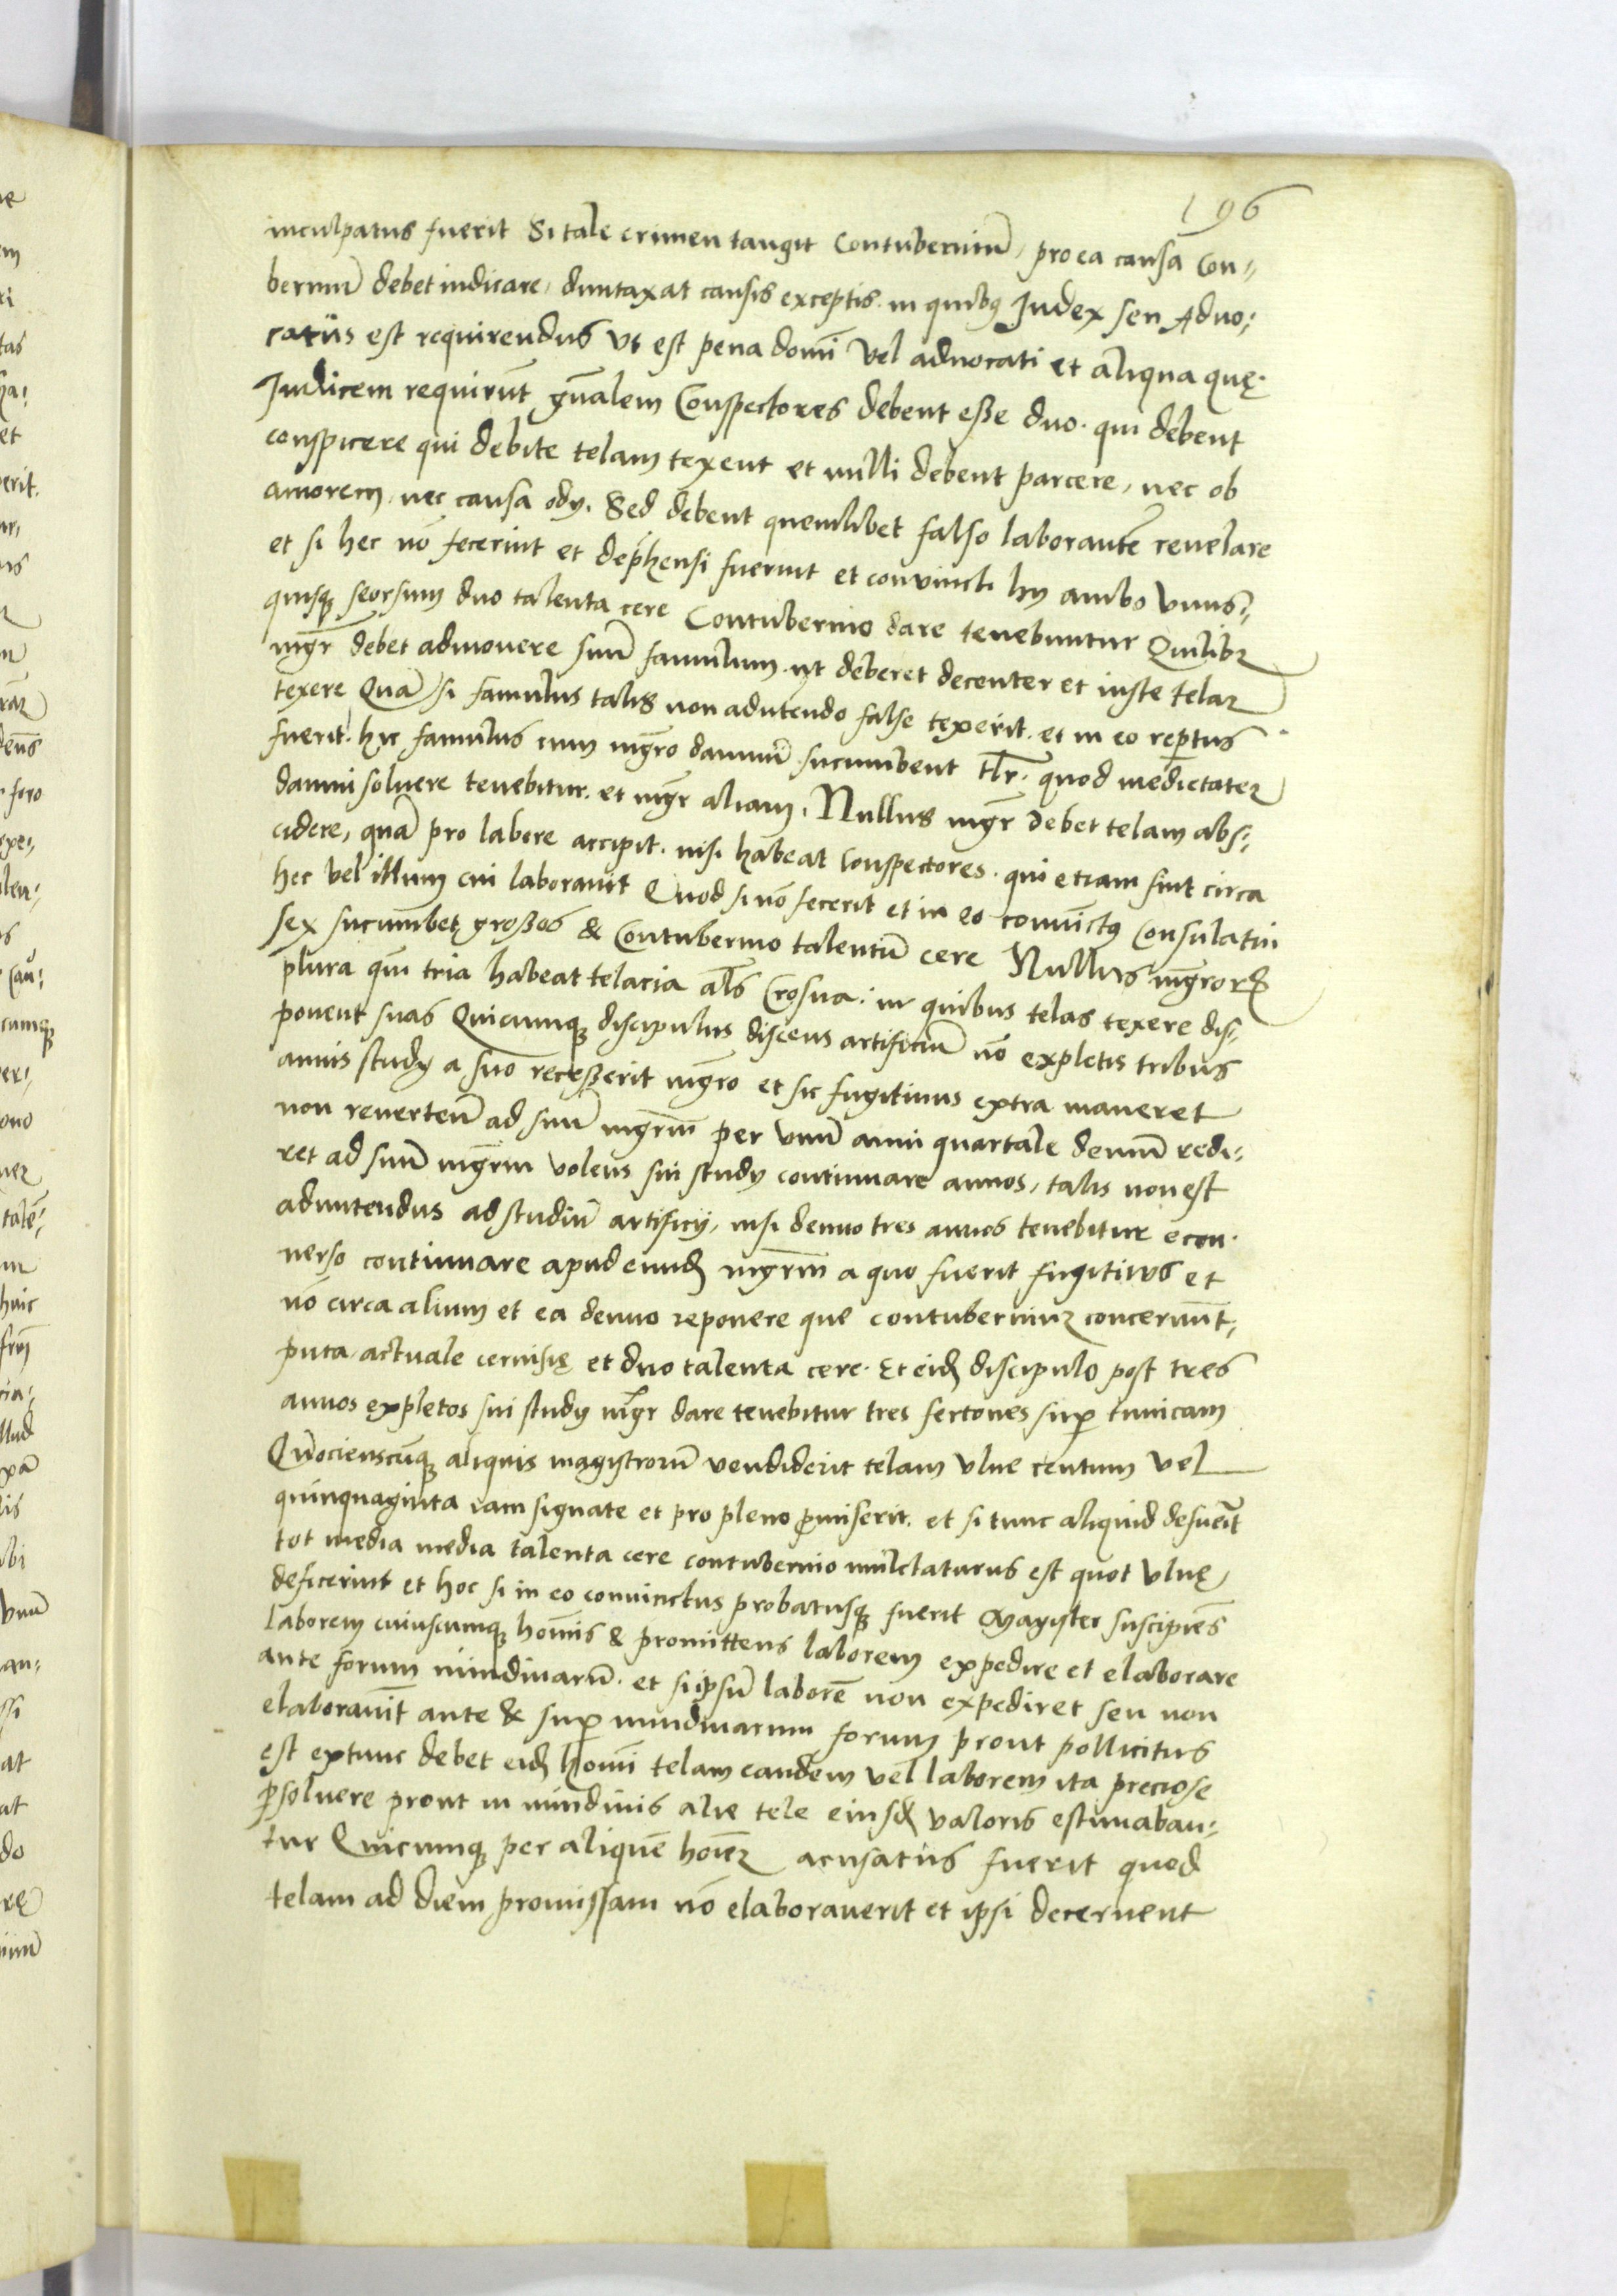 196
inculpatus fuerit Si tale crimen tangit Contuberniū, pro ea causa Con-
berniū debet iudicare, duntaxat causis exceptis. in quibꝫ Iudex seu Aduo-
catus est requirendus vt est pena domi vel aduocati et aliqua quę.
Iudicem requirūt gn̄alem Conspectores debent esse duo. qui debent
conspicere qui debite telam texent et nulli debent parcere, nec ob
amorem, nec causa odij. Sed debent quemlibet falso laborantē reuelare
et si hec nō fecerint et dep̱hensi fuerint et convincti hij ambo vnus-
quisqꝫ seorsum duo talenta cere Contubernio dare tenebuntur Quilibꝫ
mgr̄ debet admonere suū famulum. vt deberet decenter et iuste telaꝫ
texere Quā si famulus talis non adutendo false texerit. et in eo rep̱tus
fuerit. hic famulus cum mgr̄o damnū sucumbent tlr̄. quod medietateꝫ
damni soluere tenebitur. et mgr̄ aliam. Nullus mgr̄ debet telam abs-
cidere, quā pro labore accipit. nisi habeat Conspectores. qui etiam sint circa
hec vel illum cui laborauit Quod si nō fecerit et in eo conuictꝫ Consulatui
sex sucumbet grossos & Contubernio talentū cere Nullus mgr̄oꝝ
plura qm̄ tria habeat telaria al̄s Crosna. in quibus telas texere dis-
ponent suas Quicumqꝫ discipulus discens artificiū nō expletis tribus
annis studij a suo recesserit mgr̄o et sic fugitiuus extra maneret
non reuertens ad suū mgr̄m per vnū anni quartale demū redi-
ret ad suū mgr̄m volens sui studij continuare annos, talis non est
admittendus ad studiū artificij, nisi denuo tres annos tenebitur econ-
uerso continuare apud eundꝫ mgr̄m a quo fuerit fugitivus et
nō circa alium et ea denuo reponere que contuberniuꝫ concernūt,
puta, actuale ceruisię et duo talenta cere. Et eidꝫ discipulo post tres
annos expletos sui studij mgr̄ dare tenebitur tres fertones sup̱ tunicam
Quocienscūqꝫ aliquis magistrorū vendiderit telam vlne centum vel
quinquaginta iam signate et pro pleno p̱miserit. et si tunc aliquid defuerit
tot media media talenta cere contubernio mulctaturus est quot vlnę
deficerint et hoc si in eo conuinctus probatusqꝫ fuerit Magister suscipiēs
laborem cuiuscumqꝫ hoīnis & promittens laborem expedire et elaborare
ante forum nundinarū. et si ipsū laborē non expediret seu non
elaborauerit ante & sup̱ nundinarum forum prout pollicitus
est extunc debet eidꝫ homī telam eandem vel laborem ita preciose
p̱soluere prout in nundinis alie tele eiusdꝫ valoris estimaban-
tur Quicumqꝫ per aliquē hoīeꝫ acusatus fuerit quod
telam ad diem promissam nō elaborauerit et ipsi decernent